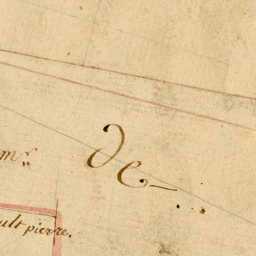 m.rs
De
ult pierre.